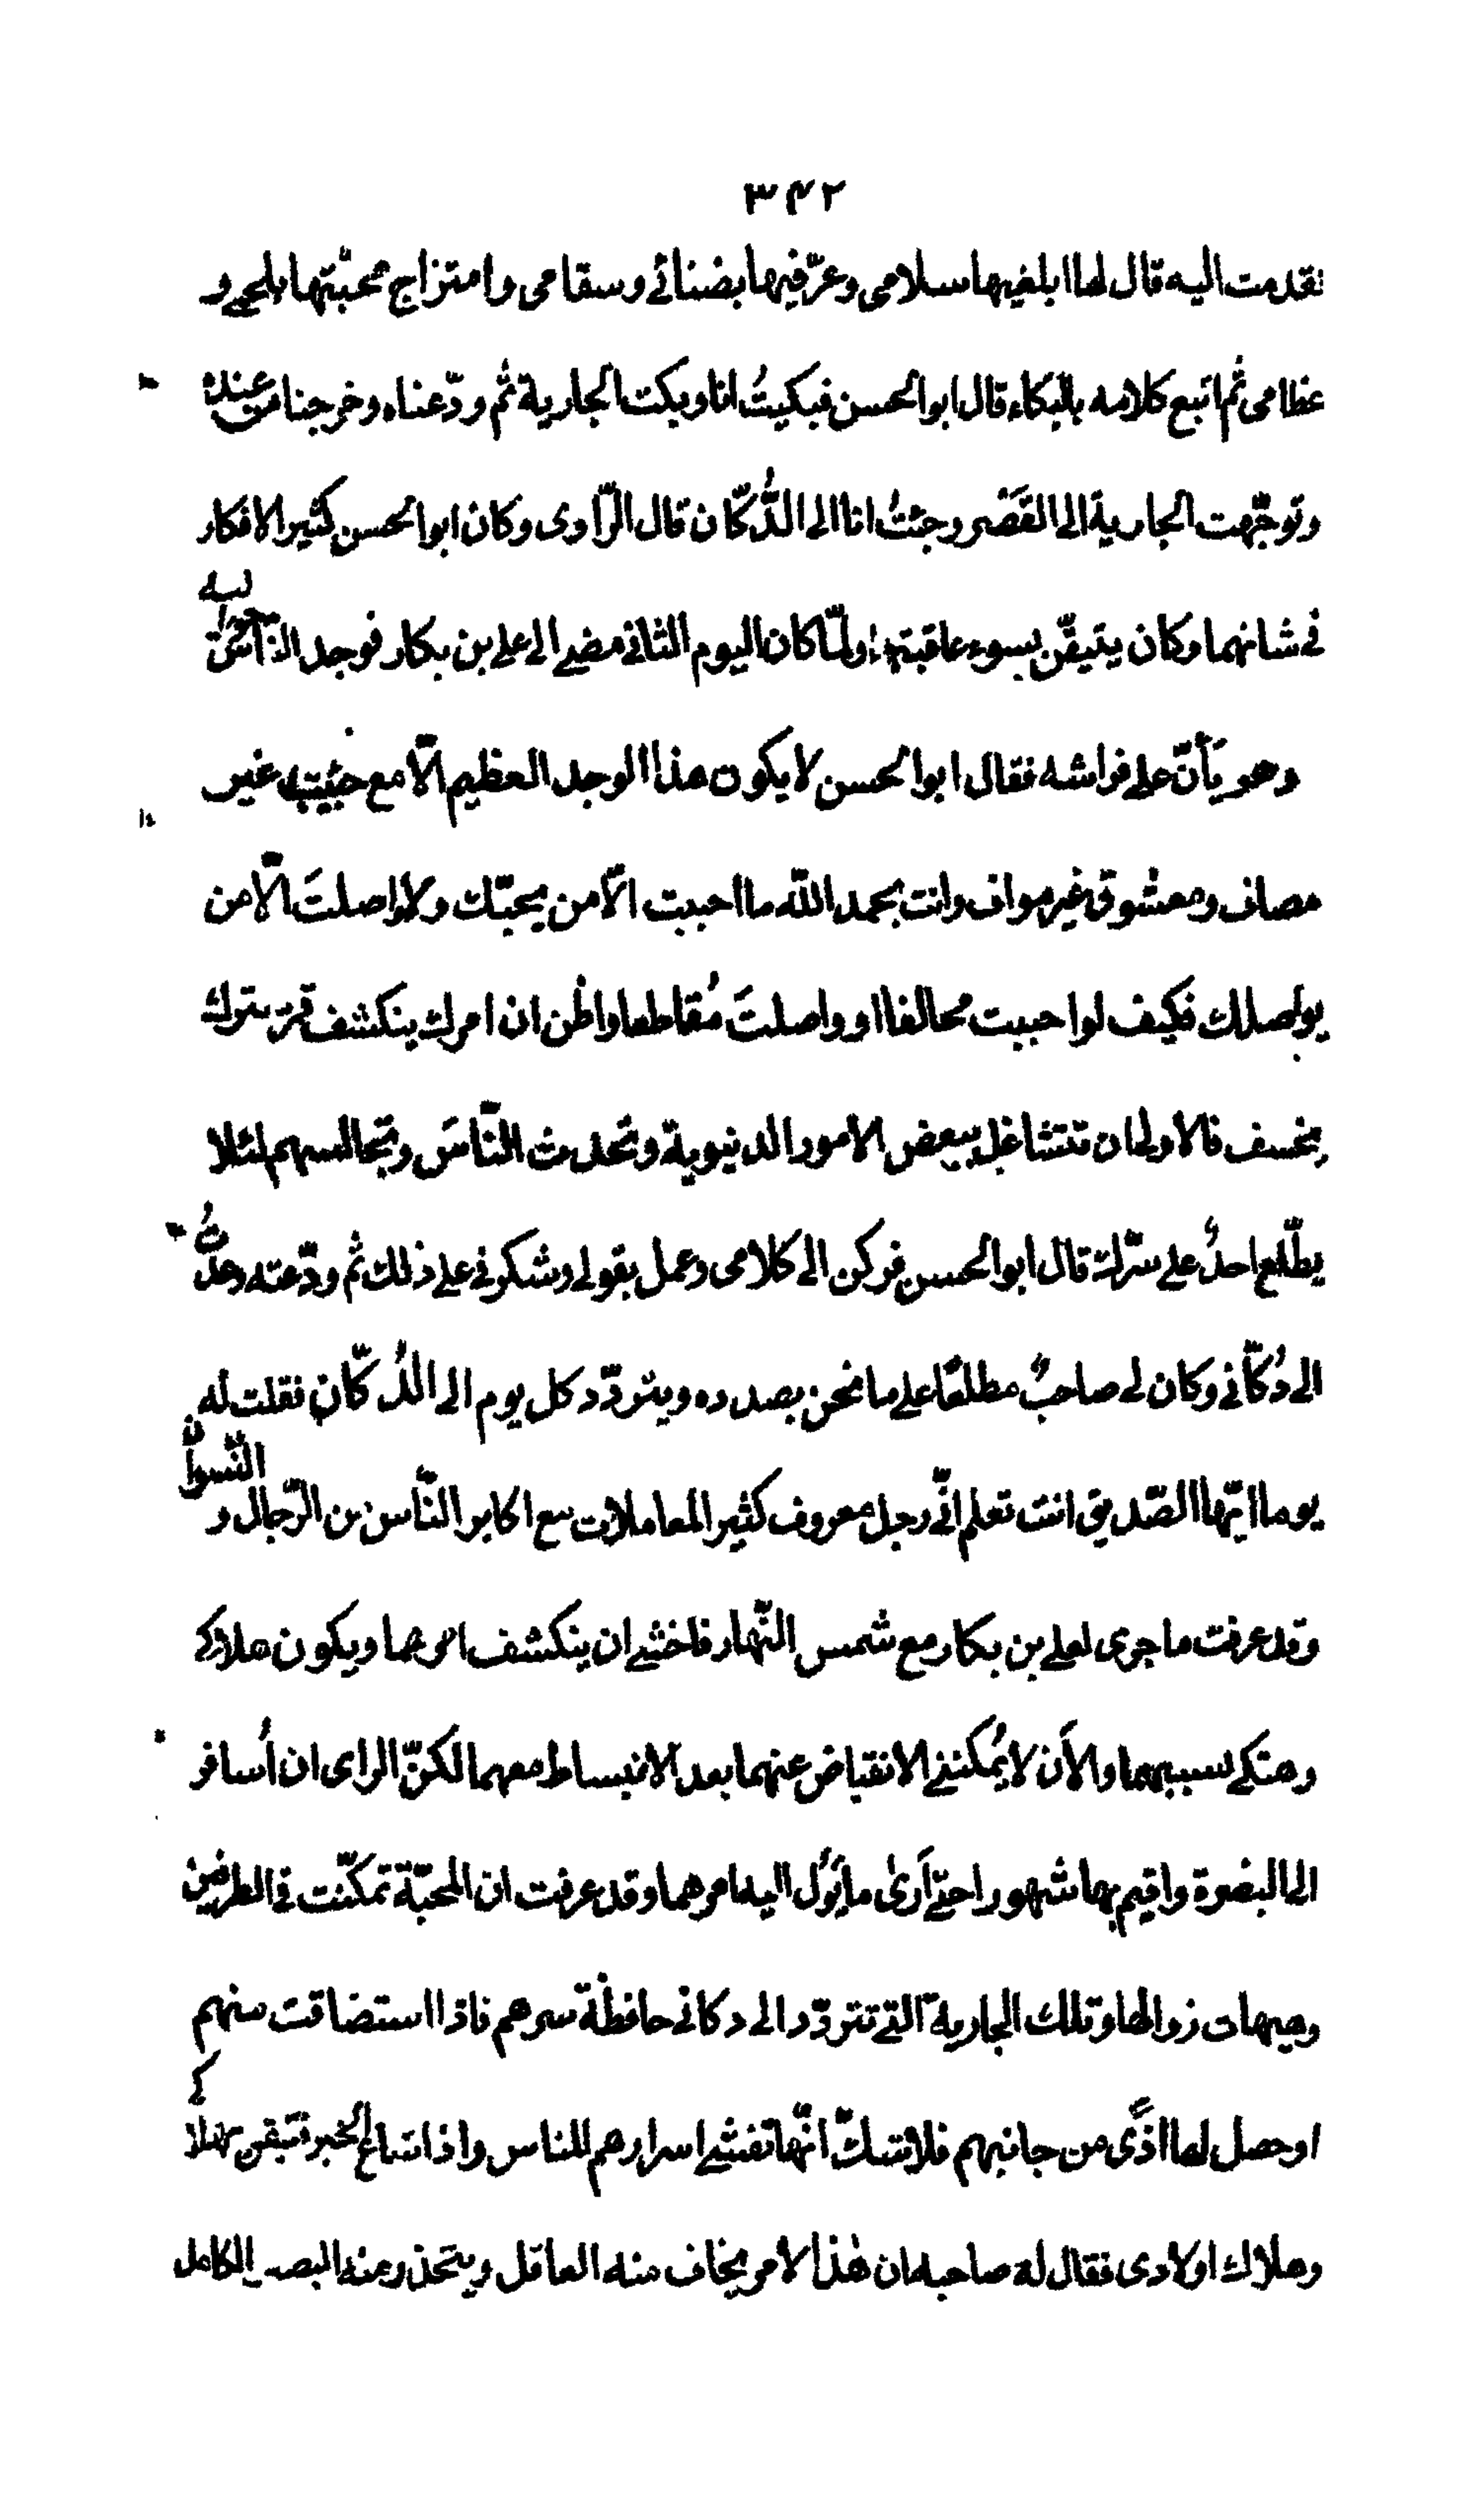 ٣٤٢
تقدمت اليه قال لها ابلغيها سلامى وعرّفيها بضنائى وسقامى وامتزاج محبّتها بلحمى و
عظامى ثم اتبع كلامه بالبكاء قال ابو الحسن فبكيتُ انا وبكت الجارية ثم ودّعناه وخرجنا من عنده
وتوجّهت الجارية الى القصر وجئتُ انا الى الدُّكّان قال الرّاوى وكان ابو الحسن كثير الافكار
فى شانهما وكان يتيقّن بسوء عاقبتهما ولمّا كان اليوم الثانى مضى الى على بن بكار فوجد النّاس
وهو يأنّ على فراشه فقال ابو الحسن لا يكون هذا الوجد العظيم الّا مع حبيب غير
مصاف ومعشوق غير مواف وانت بحمد اللّه ما احببت الّا من يحبّك ولا واصلتَ الّا من
يواصلك فكيف لو احببت مخالفا او واصلتَ مُقاطعا واظن ان امرك ينكشف قمر سترك
يخسف فالاولى ان تتشاغل ببعض الامور الدنيوية وتحدث النّاسَ وتجالسهم لئلا
يطّلع احدٌ على سرّك قال ابو الحسن فركن الى كلامى وعمل بقولى وشكرنى على ذلك ثم ودّعته وعدتُ
الى دُكّانى وكان لى صاحبٌ مطلعًا على ما نحن بصدده ويتردّد كل يوم الى الدُّكّان فقلت له
يوما ايّها الصّديق انت تعلم انّى رجل معروف كثير المعاملات مع اكابر النّاس من الرّجال و النّسوان
وقد عرفت ما جرى لعلى بن بكار مع شمس النّهار فاخشى ان ينكشف امرهما ويكون هلاكى
وهتكى بسببهما والأن لا يُمكننى الانقباض عنهما بعد الانبساط معهما لكنّ الراى ان أسافر
الى البصرة واقيم بها شهورا حتى أرى ما يؤل اليه امرهما وقد عرفت ان المحبّة تمكّنت فى الطرفين
وهيهات زوالها وتلك الجارية الّتى تتردّد الى دكانى حافظة سرهم فاذا استضاقت منهم
او حصل لها اذًى من جانبهم فلا تشكّ انّها تفشى اسرارهم للناس واذا شاع الخبر تيقن بهلاكى
وهلاك اولادى فقال له صاحبه ان هذا الامر يخاف منه العاقل ويتحذر منه البصير الكامل